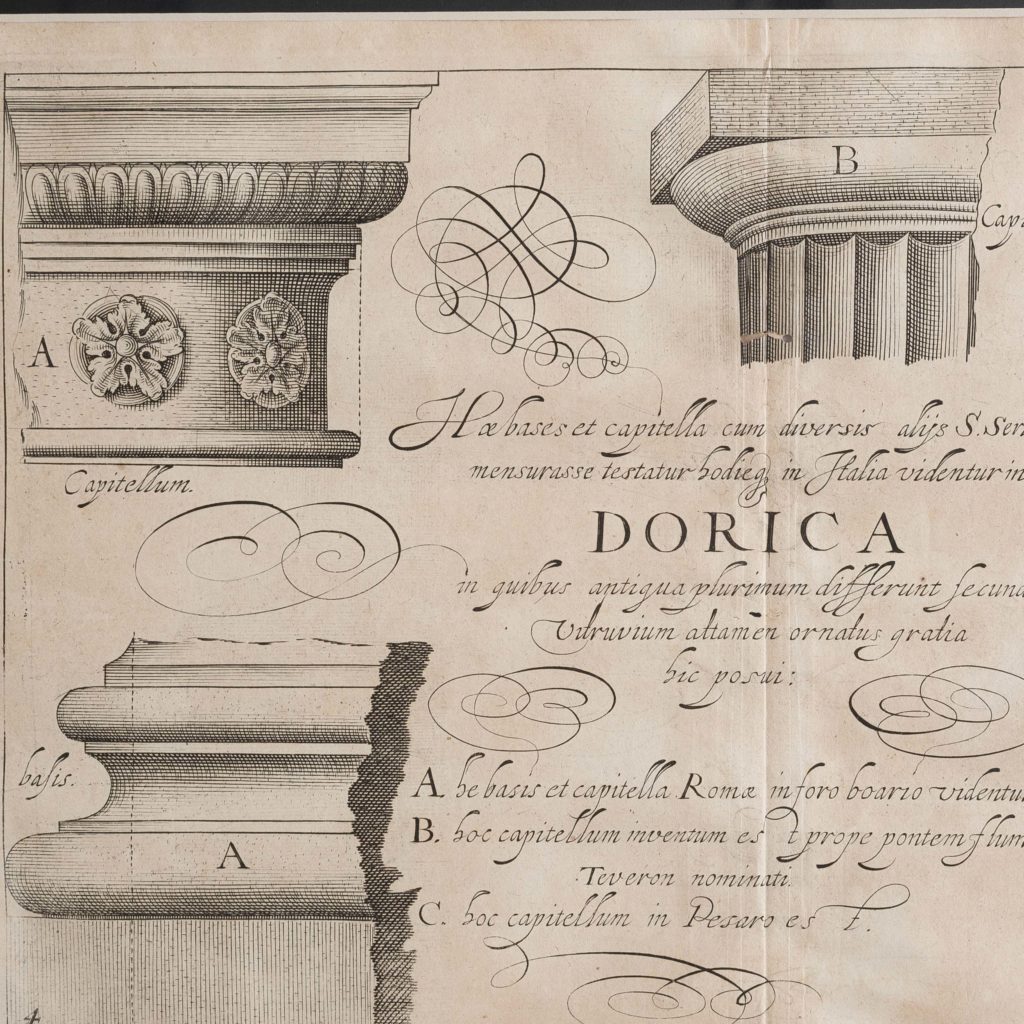 B
Capi
A
Hæ bases et capitella cum diversis alijs S. Ser
mensurasse testatur hodieq in Italia videntur in
Capitellum.
DORICA
in quibus antiqua plurimum differunt secund
Vitruvium attamen ornatus gratia
hic posui:
basis.
A. he basis et capitella Romæ in foro boario videntu
B. hoc capitellum inventum es t prope pontem flum
A
Teveron nominati.
C. hoc capitellum in Pesaro es t.
4